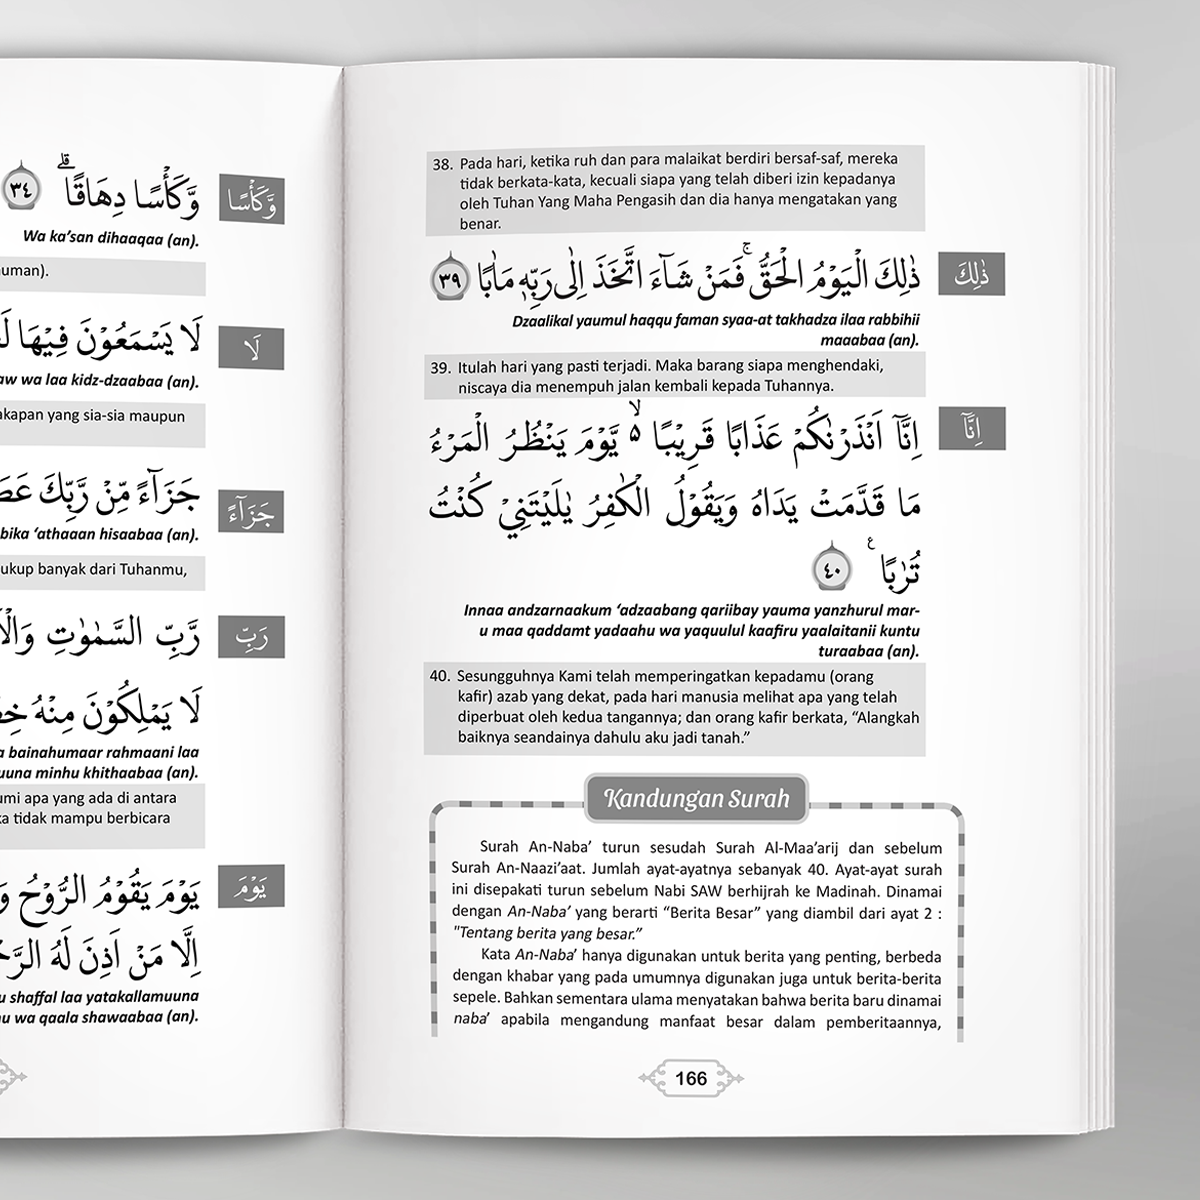 وَّكَأْسًا
وَّكَأْسًا دِهَاقًاۗ ٣٤
Wa ka'san dihaaqaa (an).
uman).
لَا
لَا يَسْمَعُوْنَ فِيْهَا
aw wa laa kidz-dzaabaa (an).
akapan yang sia-sia maupun
جَزَاۤءً
جَزَاۤءً مِّنْ رَّبِّكَ
bika 'athaaan hisaabaa (an).
ukup banyak dari Tuhanmu,
رَبِّ
رَّبِّ السَّمٰوٰتِ
لَا يَمْلِكُوْنَ مِنْهُ
a bainahumaar rahmaani laa
uuna minhu khithaabaa (an).
umi apa yang ada di antara
ka tidak mampu berbicara
يَوْمَ
يَوْمَ يَقُوْمُ الرُّوْحُ
اِلَّا مَنْ اَذِنَ لَهُ
u shaffal laa yatakallamuuna
nu wa qaala shawaabaa (an).
38. Pada hari, ketika ruh dan para malaikat berdiri bersaf-saf, mereka
tidak berkata-kata, kecuali siapa yang telah diberi izin kepadanya
oleh Tuhan Yang Maha Pengasih dan dia hanya mengatakan yang
benar.
ذٰلِكَ
ذٰلِكَ الْيَوْمُ الْحَقُّۚ فَمَنْ شَاۤءَ اتَّخَذَ اِلٰى رَبِّهٖ مَاٰبًا ٣٩
Dzaalikal yaumul haqqu faman syaa-at takhadza ilaa rabbihii
maaabaa (an).
39. Itulah hari yang pasti terjadi. Maka barang siapa menghendaki,
niscaya dia menempuh jalan kembali kepada Tuhannya.
اِنَّآ
اِنَّآ اَنْذَرْنٰكُمْ عَذَابًا قَرِيْبًا ەۙ يَّوْمَ يَنْظُرُ الْمَرْءُ
مَا قَدَّمَتْ يَدَاهُ وَيَقُوْلُ الْكٰفِرُ يٰلَيْتَنِيْ كُنْتُ
تُرٰبًا ࣖ ٤٠
Innaa andzarnaakum 'adzaabang qariibay yauma yanzhurul mar-
u maa qaddamt yadaahu wa yaquulul kaafiru yaalaitanii kuntu
turaabaa (an).
40. Sesungguhnya Kami telah memperingatkan kepadamu (orang
kafir) azab yang dekat, pada hari manusia melihat apa yang telah
diperbuat oleh kedua tangannya; dan orang kafir berkata, "Alangkah
baiknya seandainya dahulu aku jadi tanah."
Kandungan Surah
Surah An-Naba' turun sesudah Surah Al-Maa'arij dan sebelum
Surah An-Naazi'aat. Jumlah ayat-ayatnya sebanyak 40. Ayat-ayat surah
ini disepakati turun sebelum Nabi SAW berhijrah ke Madinah. Dinamai
dengan An-Naba' yang berarti "Berita Besar" yang diambil dari ayat 2 :
"Tentang berita yang besar."
Kata An-Naba' hanya digunakan untuk berita yang penting, berbeda
dengan khabar yang pada umumnya digunakan juga untuk berita-berita
sepele. Bahkan sementara ulama menyatakan bahwa berita baru dinamai
naba' apabila mengandung manfaat besar dalam pemberitaannya,
166